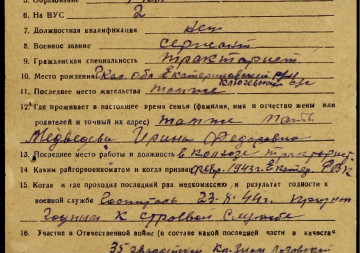 6. На ВУС 2
7. Должностная квалификация нет
8. Военное звание сержант
9. Гражданская специальность тракторист
10. Место рождения Екатериновский р-н
11. Последнее место жительства также
12. Где проживает в настоящее время семья (фамилия, имя и отчество жены или
родителей и точный их адрес) также мать
Медведева Ирина Федоровна
13. Последнее место работы и должность в колхозе тракторист
14. Каким райгорвоенкоматом и когда призван февр. 1943 г. Екатер. РВК
15. Когда и где проходил последний раз медкомиссию, и результат годности к
военной службе Госпиталь 23.8.44 г.
годным к строевой службе
16. Участие в Отечественной войне (в составе какой последней части в качестве
35 гвардейский